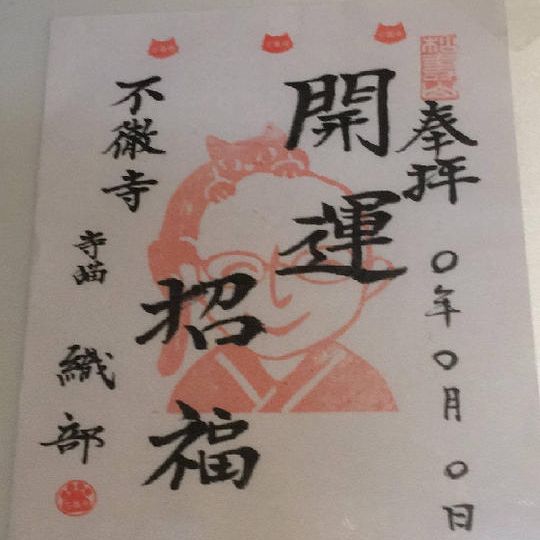 奉拝 〇年〇月〇日
開運
招福
不徹寺
寺猫 織部